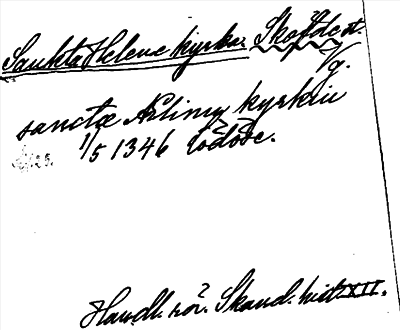 Sankta Helene kyrka. Skövde st.
Vg.
sanctæ Elinæ kyrkiu
1/5 1346 Lödöse.
Handl. rör. Skand. hist. XII.